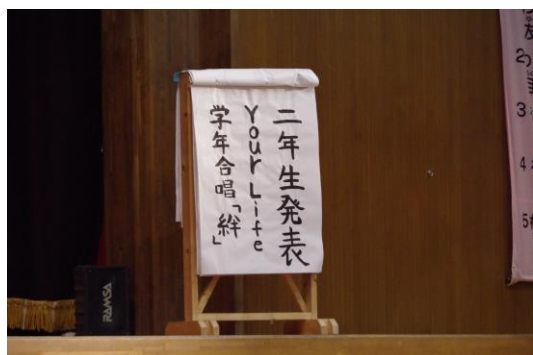 二年生発表
Your Life
学年合唱「絆」
RAMSA
2
3
4
5